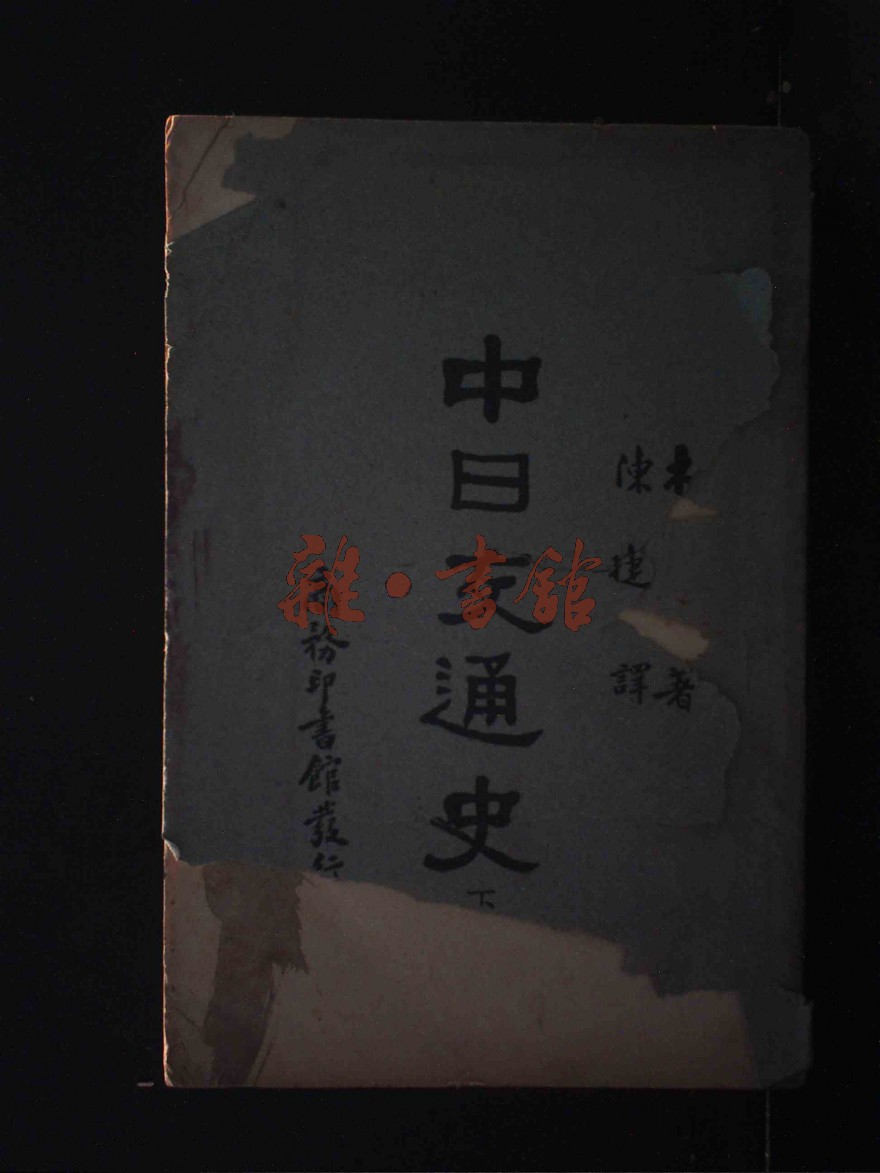 木 著
陳捷譯
中日交通史 下
商務印書館發行
雜·書館